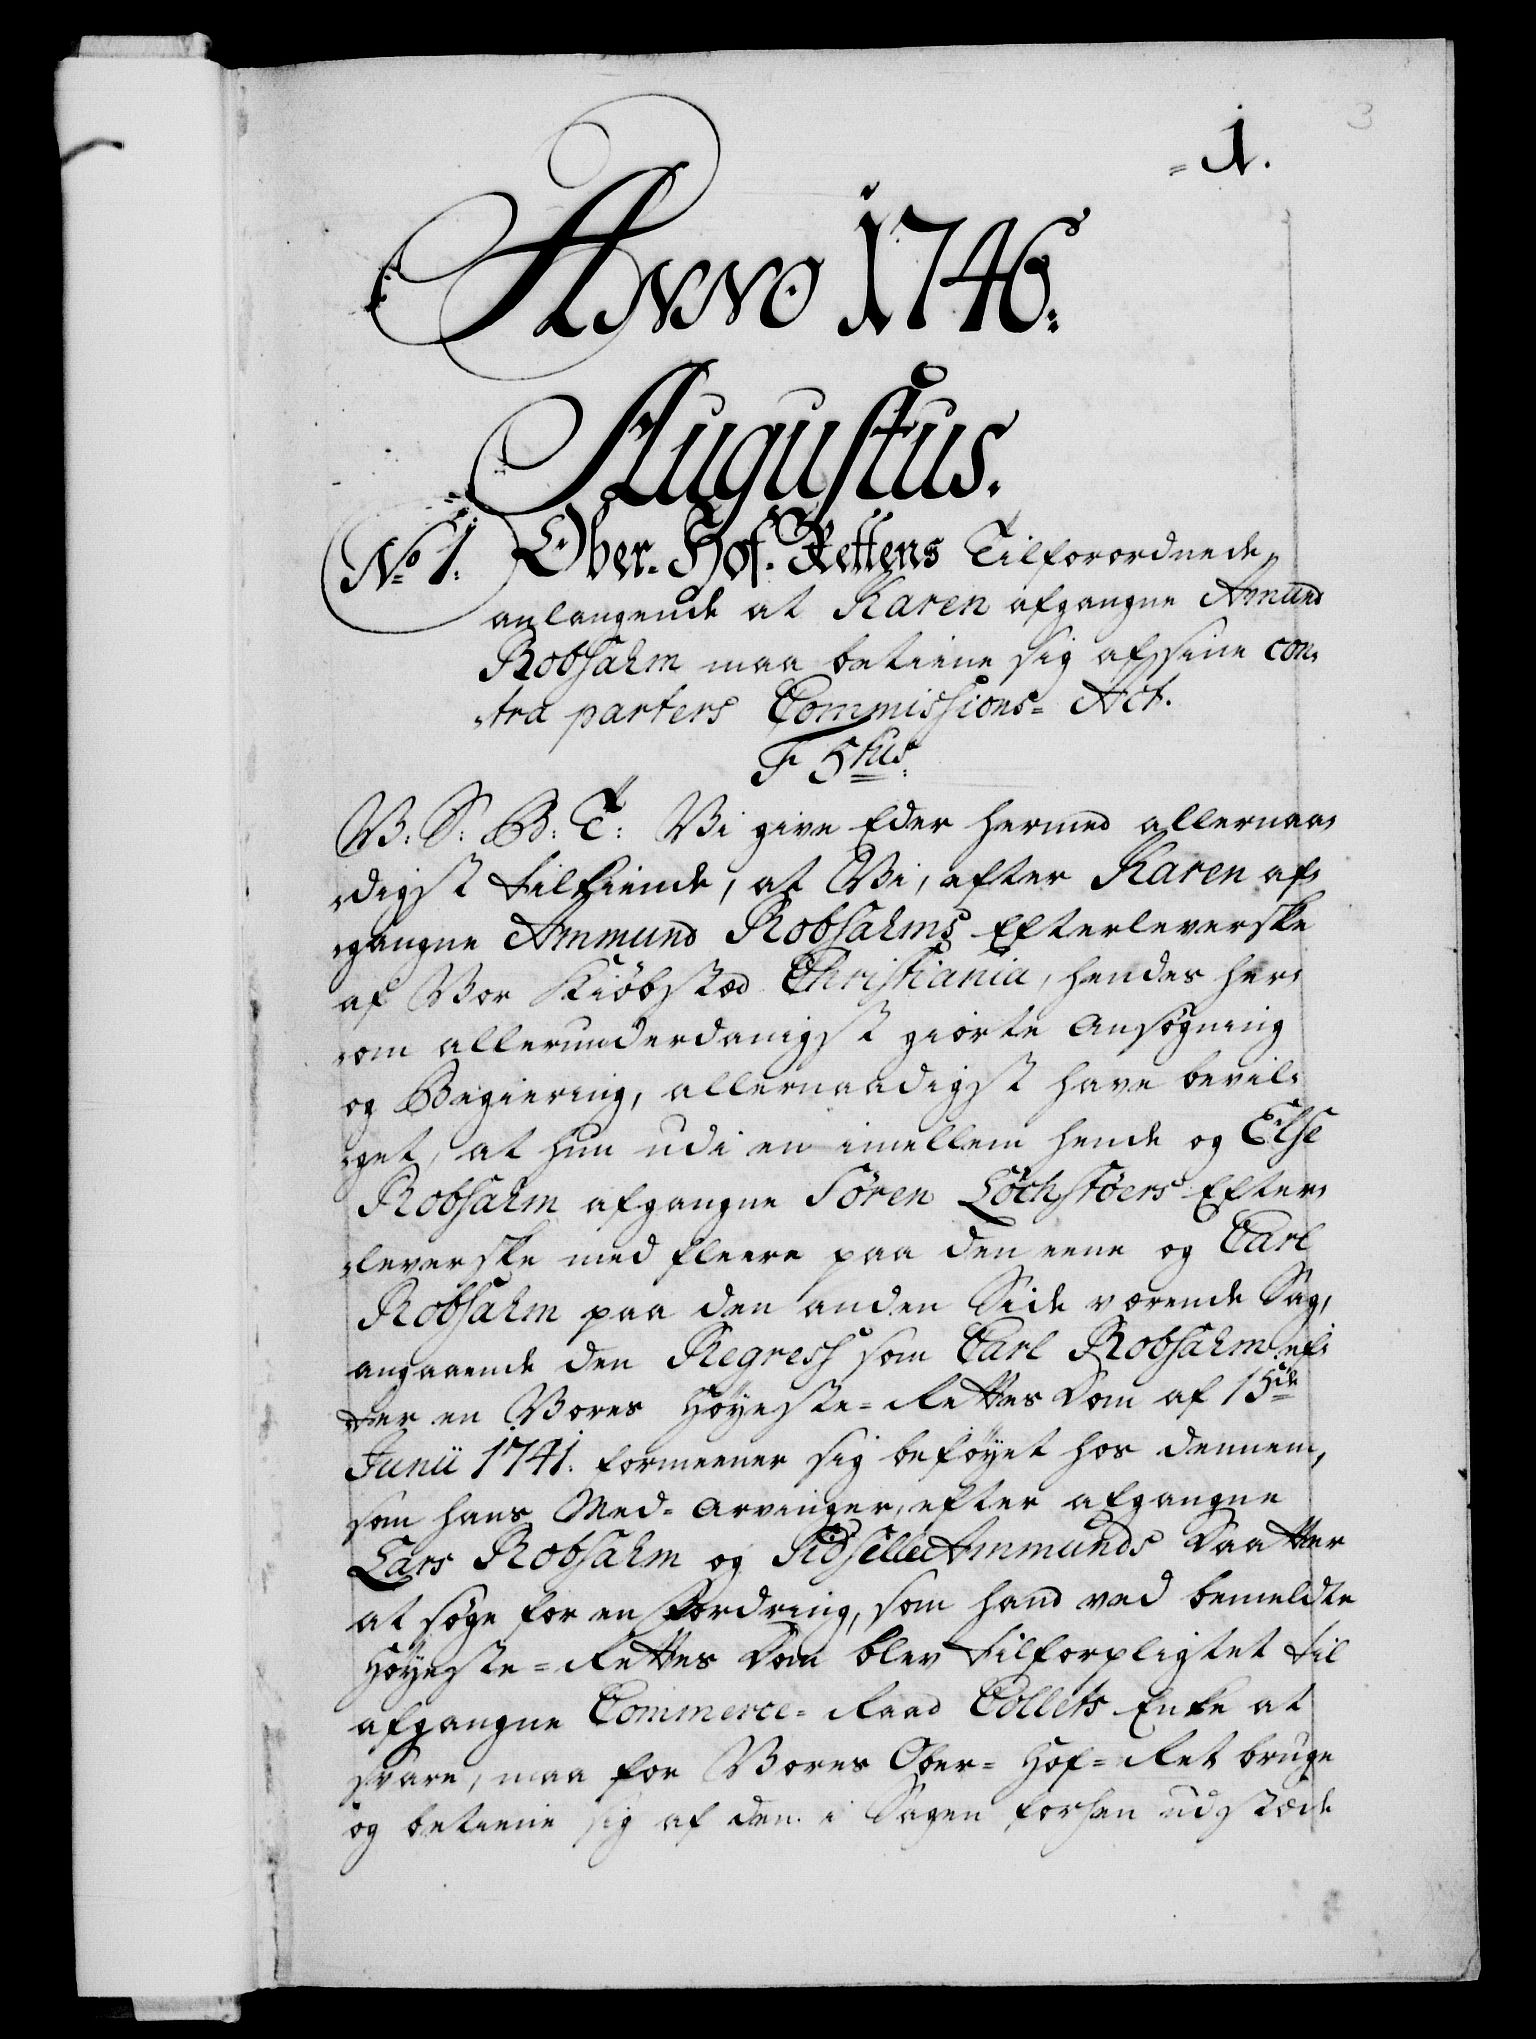 3
= 1.
Anno 1746.
Augustus.
No 1. Ober-Hof-Rettens Tilforordnede
anlangende at Karen afgangne Amund
Robsahm maa betiene sig af sine con-
-tra parters Commissions= Act.
F 5tus.
V: S: G: T: Vi give Eder hermed allernaa-
-digst tilkiende, at Vi, efter Karen af-
-gangne Ammund Robsahms Efterleverske
af Vor Kiöbstæd Christiania, hendes her-
-om allerunderdanigst giorte Ansögning
og Begiering, allernaadigst have bevil-
-get, at hun udi en imellem hende og Else
Robsahm afgangne Sören Lochstöers Efter-
-leverske med fleere paa den eene og Carl
Robsahm paa den anden Side værende Sag,
angaaende den Regress som Carl Robsahm ef-
-ter en Vores Höyeste=Rettes Dom af 15de
Junii 1741. formeener sig beföyet hos dennem,
som hans Med=Arvinger, efter afgangne
Lars Robsahm og Sidselle Ammunds Daatter
at söge for en Fordring, som hand ved bemeldte
Höyeste=Rettes Dom blev tilforpligtet til
afgangne Commerce=Raad Collets Enke at
svare, maa for Vores Ober=Hof=Ret bruge
og betiene sig af den i Sagen forhen udstæde